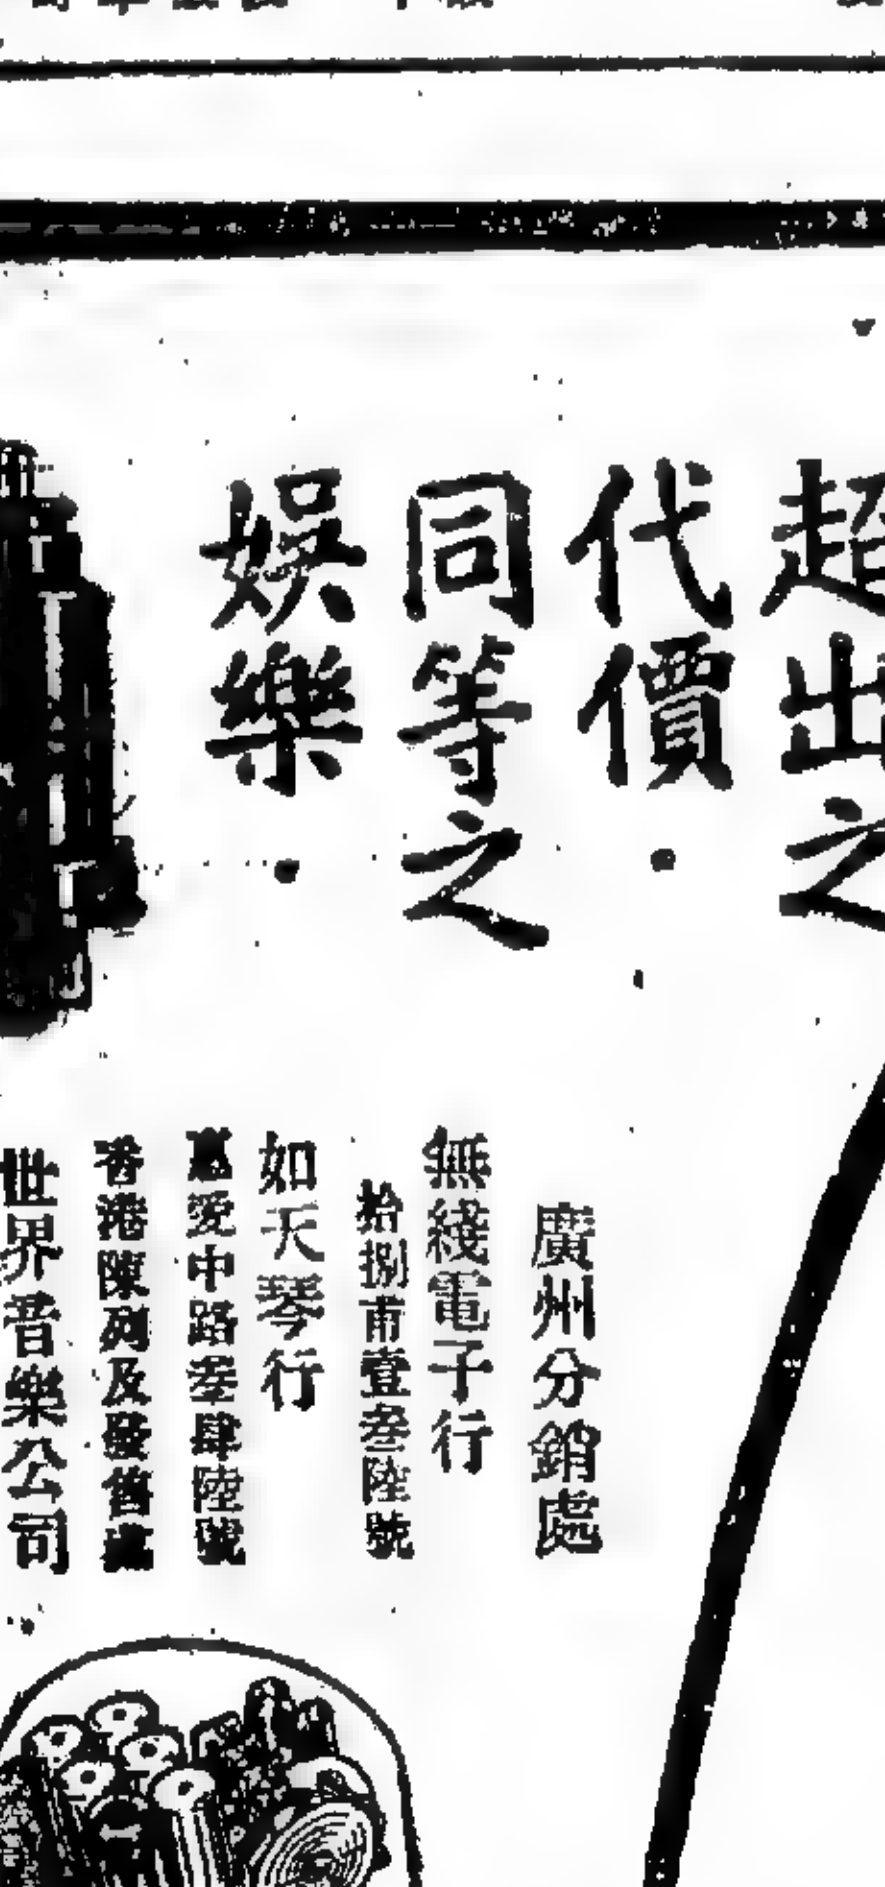 超出之
代價·
同等之
娛樂·
廣州分銷處
無綫電子行
拾捌甫壹叁陸號
如天琴行
惠愛中路叁肆陸號
香港陳列及發售處
世界音樂公司